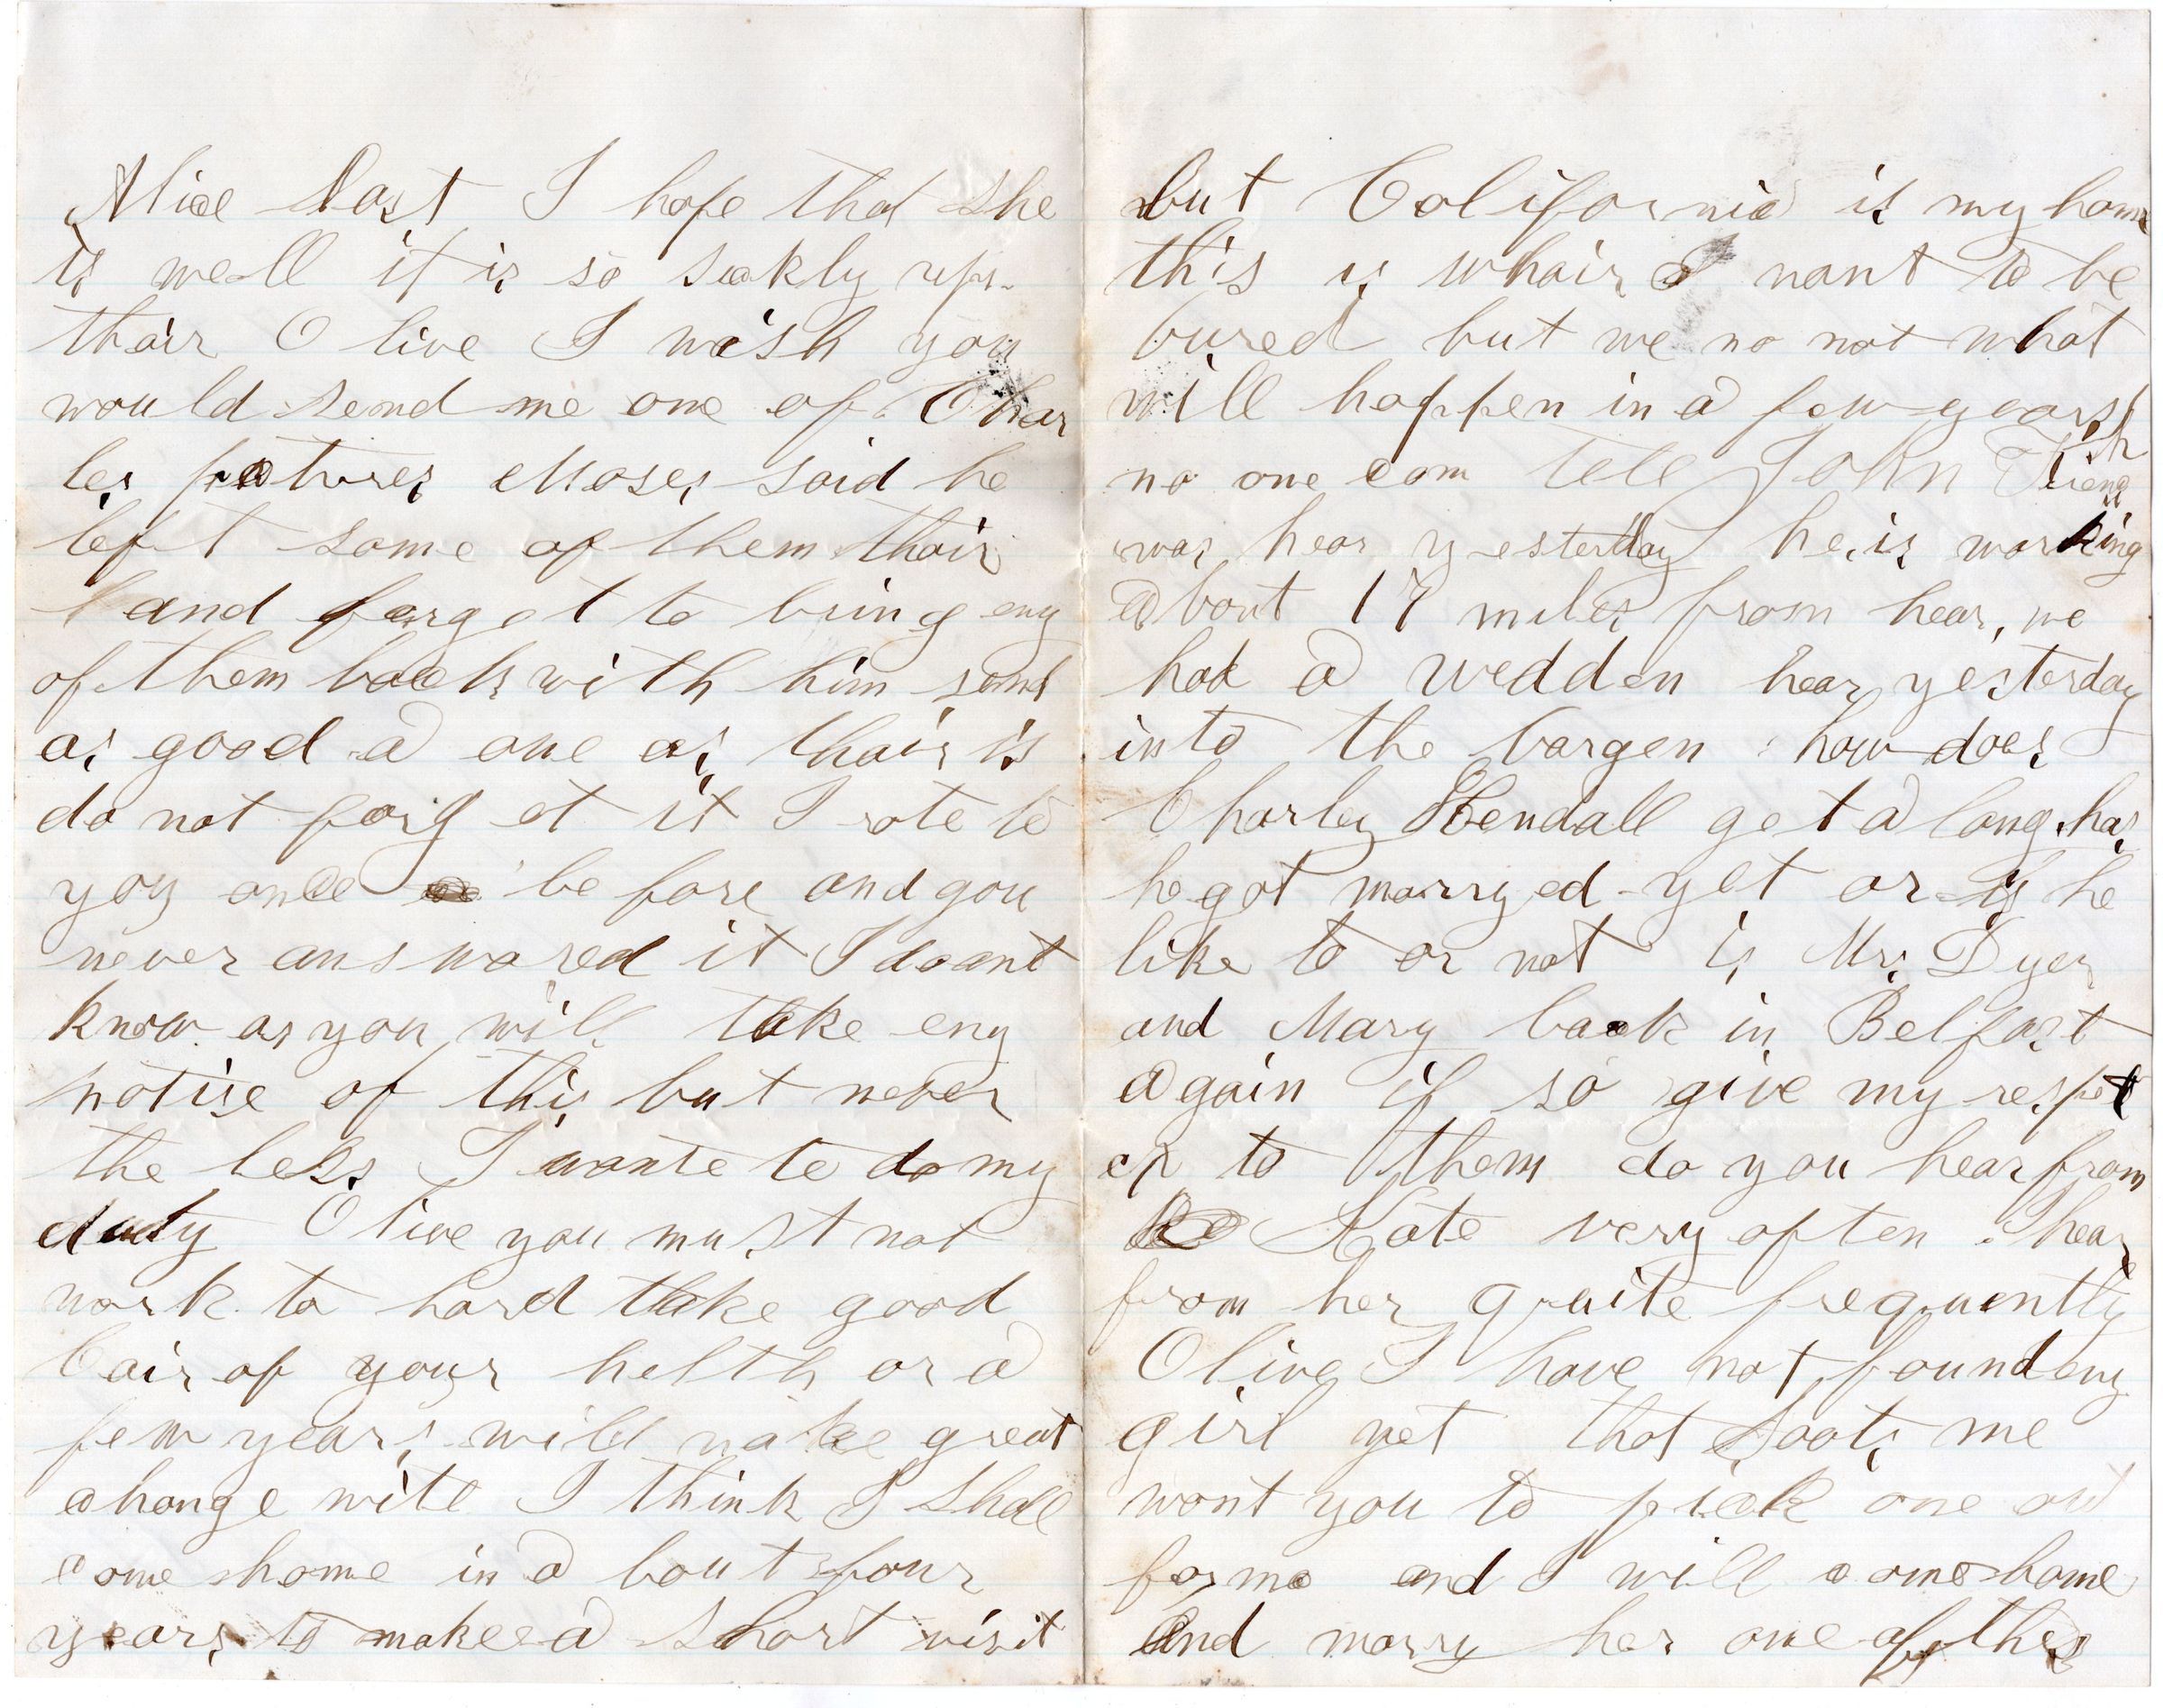 Alice last I hope that she
is well it is so seakly up
thair Olive I wish you
would send me one of Char
les pictures Moses said he
left some of them thair
and forgot to bring eny
of them back with him send
as good a one as thair is
do not forget it I rote to
you once before and you
never answared it I doant
know as you will take eny
notise of this but never
the less I wante to do my
duty Olive you must not
work to hard take good
Cair of your helth or a
few years will make great
change with I think I shall
come home in a bout four
years to make a short visit
but California is my home
this is whair I want to be
bured but we no not what
will happen in a few years
no one can tell John
was hear yesterday he is working
about 17 miles from hear, we
had a wedden hear yesterday
into the bargen how does
Charley Kendall get a long has
he got marryed yet or is he
like to or not is Mr. Dyer
and Mary back in Belfast
again if so give my respet
to them do you hear from
Kate very often I hear
from her quaite frequently
Olive I have not found eny
girl yet that soots me
wont you to pick one out
for me and I will come home
and marry her one of thes